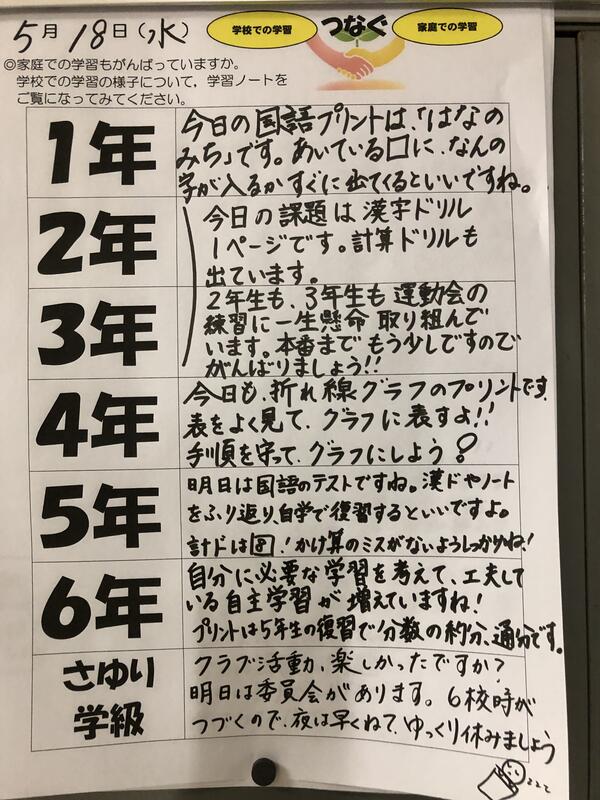 5月18日(水)
学校での学習 つなぐ 家庭での学習
◎家庭での学習もがんばっていますか。
学校での学習の様子について，学習ノートを
ご覧になってみてください。
1年
今日の国語プリントは、「はなの
みち」です。あいている□に、なんの
字が入るかすぐに出てくるといいですね。
2年
今日の課題は漢字ドリル
1ページです。計算ドリルも
出ています。
3年
2年生も、3年生も運動会の
練習に一生懸命取り組んで
います。本番までもう少しですので
がんばりましょう!!
4年
今日も、折れ線グラフのプリントです。
表をよく見て、グラフに表すよ!!
手順を守って、グラフにしよう
5年
明日は国語のテストですね。漢ドやノート
をふり返り、自学で復習するといいですよ。
計ドは⑧!かけ算のミスがないようしっかりね!
6年
自分に必要な学習を考えて、工夫して
いる自主学習が増えていますね!
プリントは5年生の復習で分数の約分、通分です。
さゆり
学級
クラブ活動、楽しかったですか?
明日は委員会があります。6校時が
つづくので、夜は早くねて、ゆっくり休みましょう